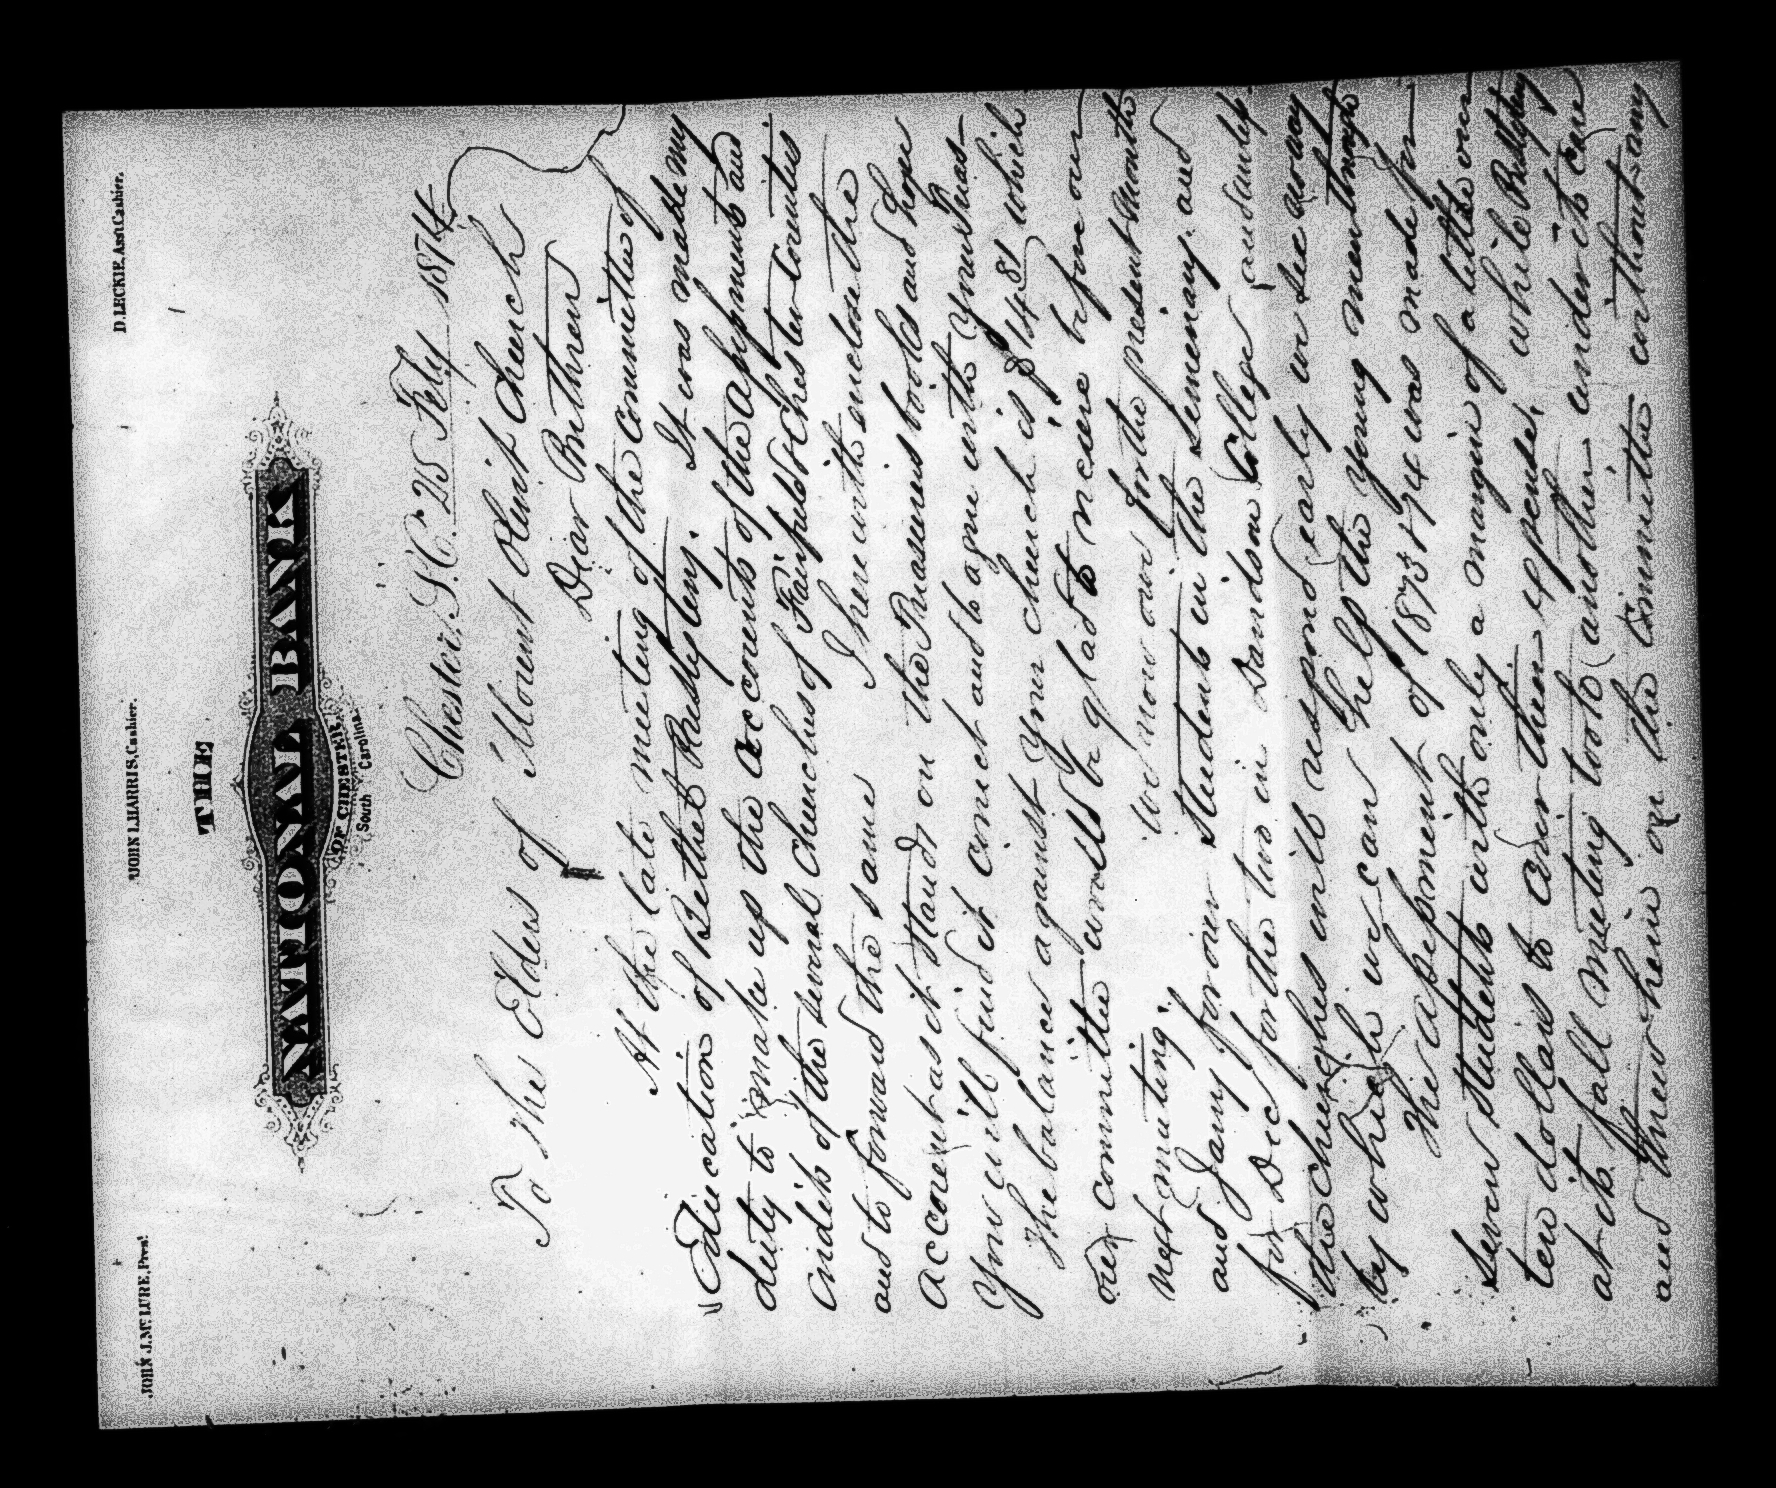 JOHN J. McLURE, Pres't. JOHN L. HARRIS, Cashier. D. LECKIE, Ass't Cashier.
THE
NATIONAL BANK
OF CHESTER,
South Carolina.
Chester, S.C. 25 Feby 1874
To The Elders of Mount Olivit Church
Dear Brethren
At the late meeting of the Committee of
Education of Bethel Presbytery. It was made my
duty to make up the accounts of the assessments and
credits of the several Churches of Fairfield & Chester Counties
and to forward the same I herewith enclose the
account as it stands on the Treasurers books and hope
you will find it correct and to agree with your Treas
The balance against your church is $14 81 which
our committee would be glad to receive before our
next meeting. We now owe for the present month
and Jany for our students in the Seminary. and
for Dec for the two in Davidson College
the churches will respond early we see no way
by which we can help the young men
The assessment of 1873 & 74 was made for
seven students with only a margin of a little over
ten dollars to cover their expense, while Presbytery
at its fall meeting took another under its care
and threw him on the Committee without any